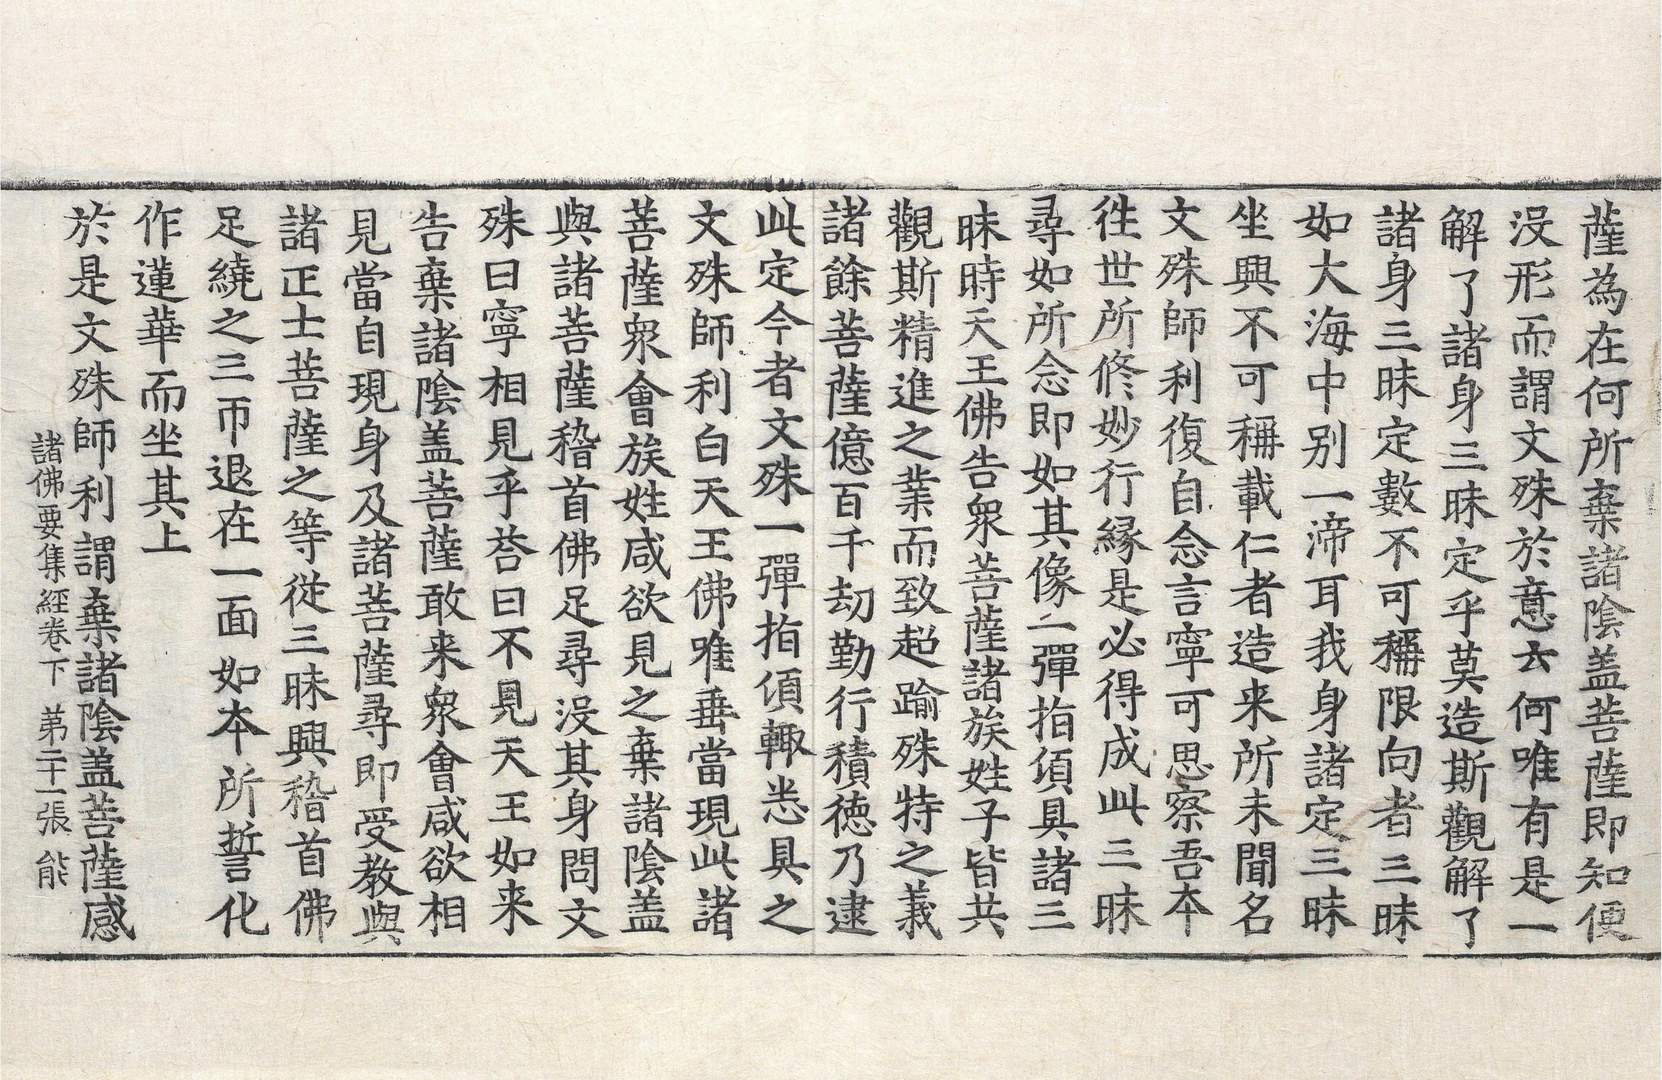 薩為在何所棄諸陰盖菩薩即知便
没形而謂文殊於意云何唯有是一
解了諸身三昧定乎莫造斯觀解了
諸身三昧定數不可稱限向者三昧
如大海中别一渧耳我身諸定三昧
坐興不可稱載仁者造来所未聞名
文殊師利復自念言寧可思察吾本
徃世所修妙行緣是必得成此三昧
尋如所念即如其像一彈指頃具諸三
昧時天王佛告衆菩薩諸族姓子皆共
觀斯精進之業而致超踰殊特之義
諸餘菩薩億百千劫勤行積德乃逮
此定今者文殊一彈指頃輙悉具之
文殊師利白天王佛唯垂當現此諸
菩薩衆會族姓咸欲見之棄諸陰盖
與諸菩薩稽首佛足尋没其身問文
殊曰寧相見乎荅曰不見天王如来
告棄諸陰盖菩薩敢来衆會咸欲相
見當自現身及諸菩薩尋即受教與
諸正士菩薩之等從三昧興稽首佛
足繞之三帀退在一面如本所誓化
作蓮華而坐其上
於是文殊師利謂棄諸陰盖菩薩感
諸佛要集經卷下 第二十一張 能